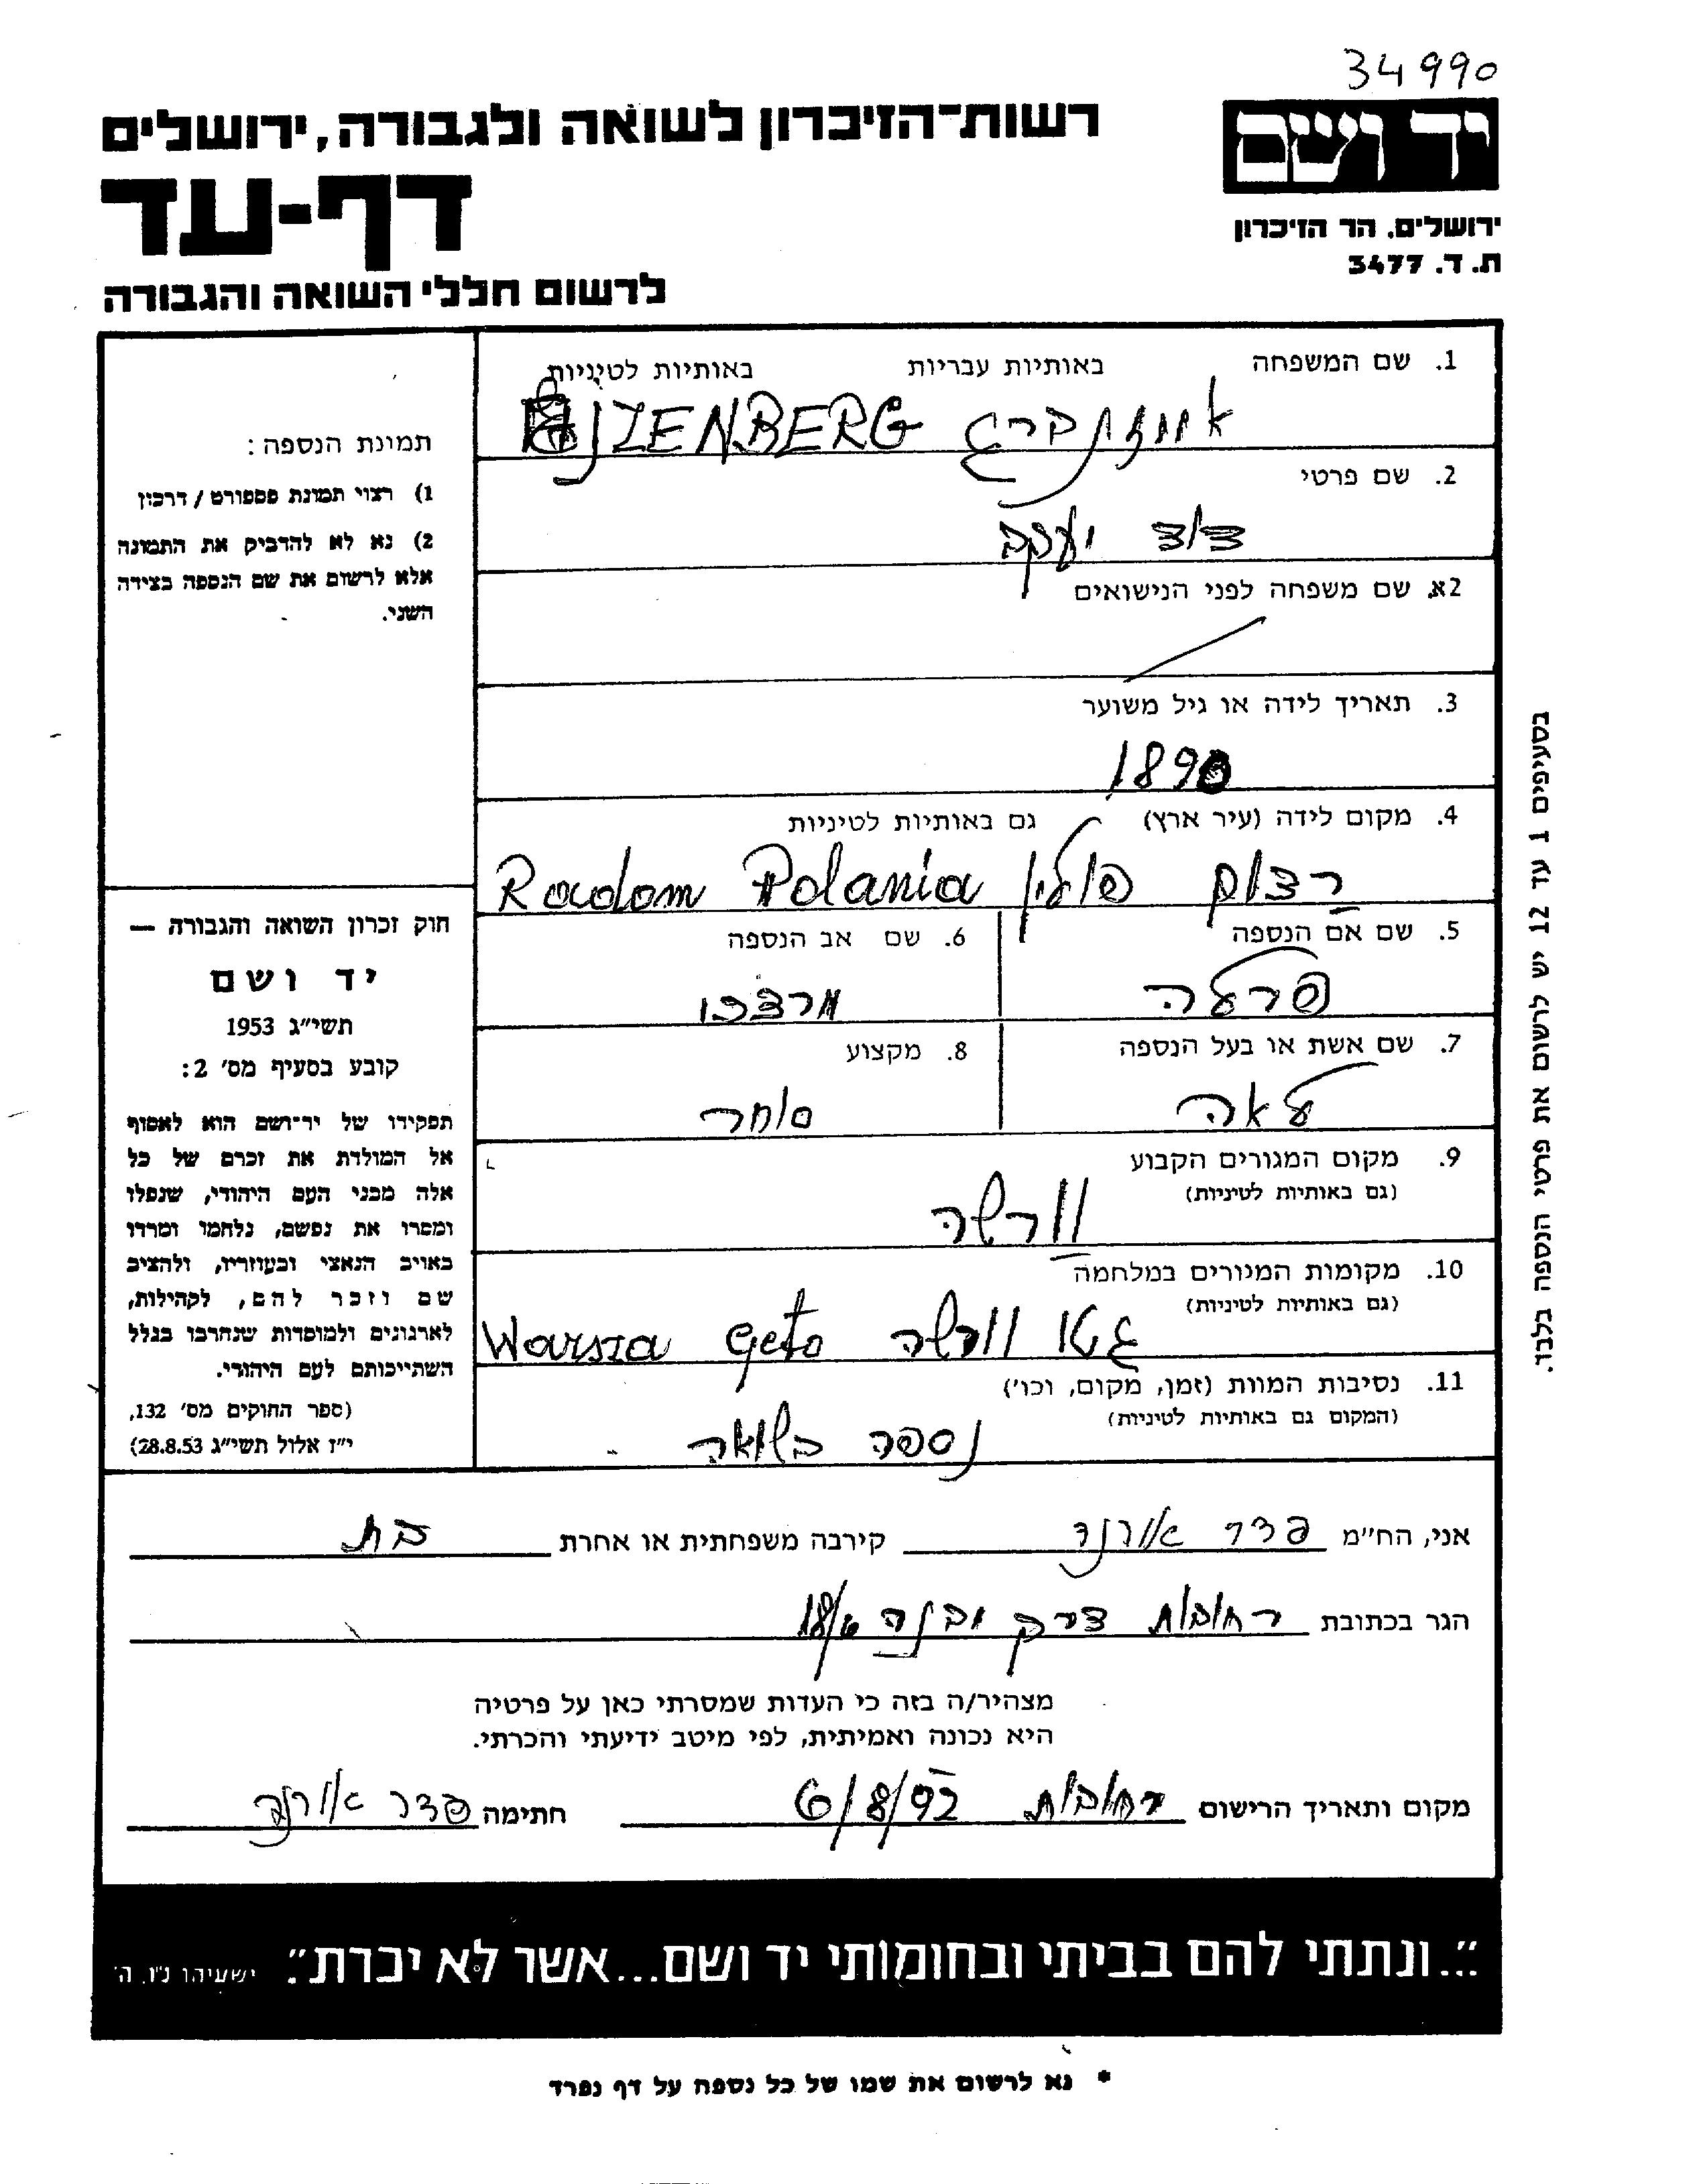 34990
יד ושם
ירושלים. הר הזיכרון
ת. ד. 3477
רשות-הזיכרון לשואה ולגבורה, ירושלים
דף-עד
לרשום חללי השואה והגבורה
1. שם המשפחה באותיות עבריות באותיות לטיניות
אייזנברג EJZENBERG
2. שם פרטי
דוד יעקב
2א. שם משפחה לפני הנישואים
3. תאריך לידה או גיל משוער
1890
4. מקום לידה (עיר ארץ) גם באותיות לטיניות
רדום פולין Radom Polania
5. שם אם הנספה 6. שם אב הנספה
פרלה מרדכי
7. שם אשת או בעל הנספה 8. מקצוע
לאה סוחר
9. מקום המגורים הקבוע
(גם באותיות לטיניות)
וורשה
10. מקומות המגורים במלחמה
(גם באותיות לטיניות)
גטו וורשה Geto Warsza
11. נסיבות המוות (זמן, מקום, וכו')
(המקום גם באותיות לטיניות)
נספה בשואה
תמונת הנספה:
1) רצוי תמונת פספורט / דרכון
2) נא לא להדביק את התמונה
אלא לרשום את שם הנספה בצידה
השני.
חוק זכרון השואה והגבורה —
יד ושם
תשי"ג 1953
קובע בסעיף מס' 2:
תפקידו של יד-ושם הוא לאסוף
אל המולדת את זכרם של כל
אלה מבני העם היהודי, שנפלו
ומסרו את נפשם, נלחמו ומרדו
באויב הנאצי ובעוזריו, ולהציב
שם וזכר להם, לקהילות,
לארגונים ולמוסדות שנחרבו בגלל
השתייכותם לעם היהודי.
(ספר החוקים מס' 132,
י"ז אלול תשי"ג 28.8.53)
בסעיפים 1 עד 12 יש לרשום את פרטי הנספה בלבד.
אני, הח"מ פדר קירבה משפחתית או אחרת בת
הגר בכתובת רחובות דרך יבנה 18/6
מצהיר/ה בזה כי העדות שמסרתי כאן על פרטיה
היא נכונה ואמיתית, לפי מיטב ידיעתי והכרתי.
מקום ותאריך הרישום רחובות 6/8/92 חתימה פדר
"...ונתתי להם בביתי ובחומותי יד ושם...אשר לא יכרת". ישעיהו נ"ו. ה'
* נא לרשום את שמו של כל נספה על דף נפרד